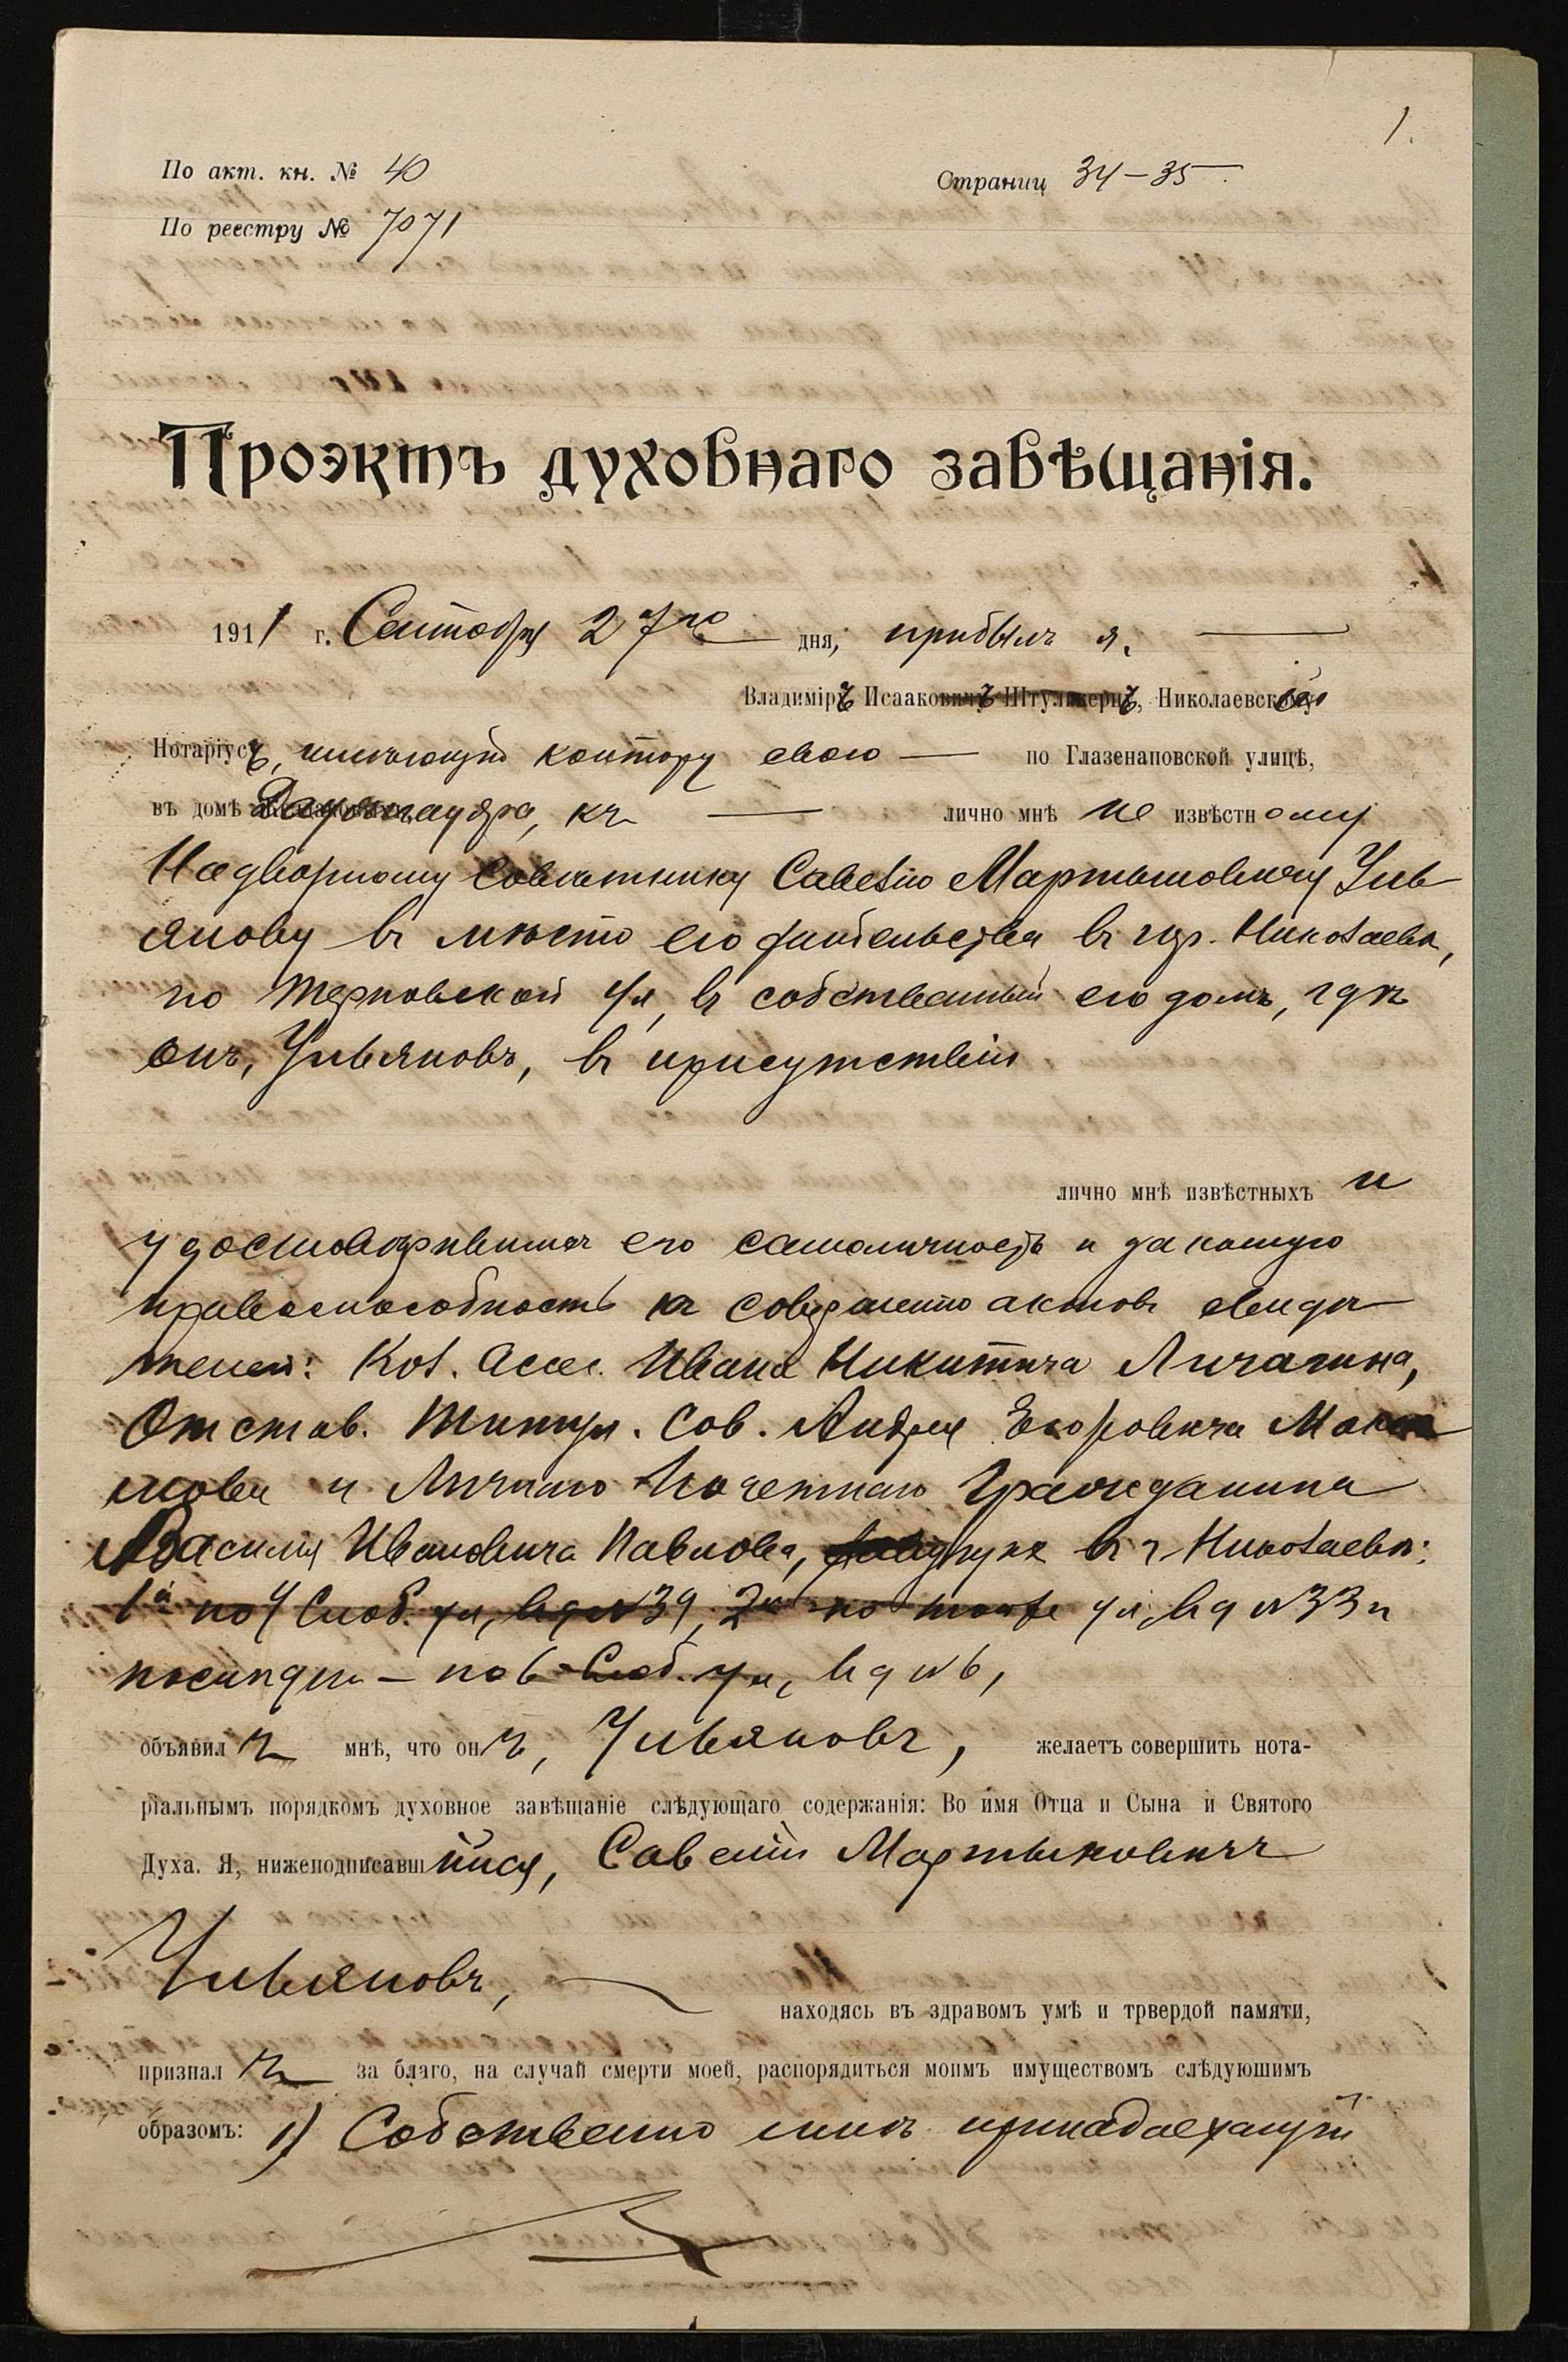 1.
По акт. кн. № 40
Страниц 34–35
По реестру № 7071
Проэктъ духовнаго завѣщанія.
1911 г. Сентября 27го дня, прибылъ я,
Владиміръ Исааковичъ Штулькернъ, Николаевскій
Нотаріусъ, имѣющій контору свою — по Глазенаповской улицѣ,
въ домѣ къ — лично мнѣ не извѣстному
Надворному Совѣтнику Савелію Мартыновичу Уль-
янову въ мѣсто его жительства въ гор. Николаевѣ,
по Терновской ул, въ собственный его домъ, гдѣ
онъ, Ульяновъ, въ присутствіи
лично мнѣ извѣстныхъ и
удостовѣрившихъ его самоличность и законную
правоспособность къ совершенію актовъ свидѣ-
телей: Кол. Асес. Ивана Никитича Личагина,
Отстав. Титул. Сов. Андрея Егоровича
мова и Личнаго Почетнаго Гражданина
Василія Ивановича Павлова, въ г Николаевѣ:
1й по 4 Слоб. ул, въ д №39, 2й по тойже ул, въ д №33 и
послѣдн – по 6 Слоб. ул, въ д №6,
объявилъ мнѣ, что онъ, Ульяновъ, желаетъ совершить нота-
ріальнымъ порядкомъ духовное завѣщаніе слѣдующаго содержанія: Во имя Отца и Сына и Святого
Духа. Я, нижеподписавшійся, Савелій Мартыновичъ
Ульяновъ,
находясь въ здравомъ умѣ и трвердой памяти,
призналъ за благо, на случай смерти моей, распорядиться моимъ имуществомъ слѣдуюшимъ
образомъ: 1) Собственно мнѣ принадлежащій